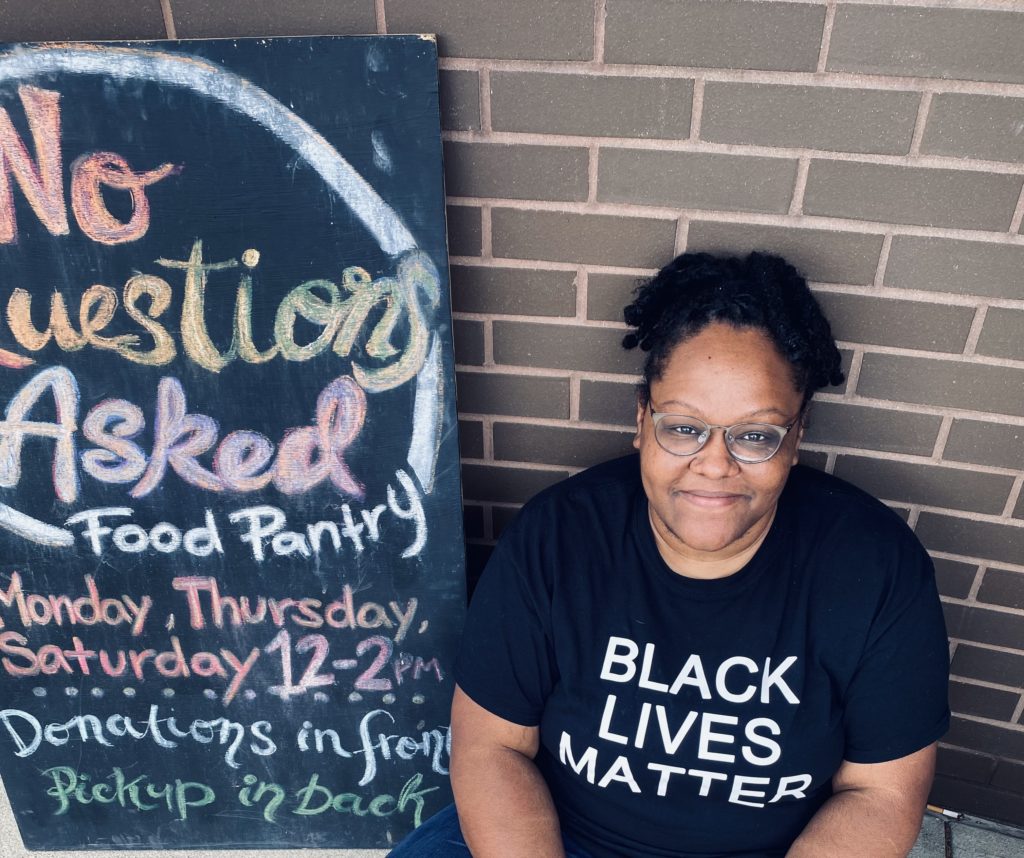 No
Questions
Asked
Food Pantry
Monday, Thursday,
Saturday 12-2PM
Donations in front
Pickup in back
BLACK
LIVES
MATTER